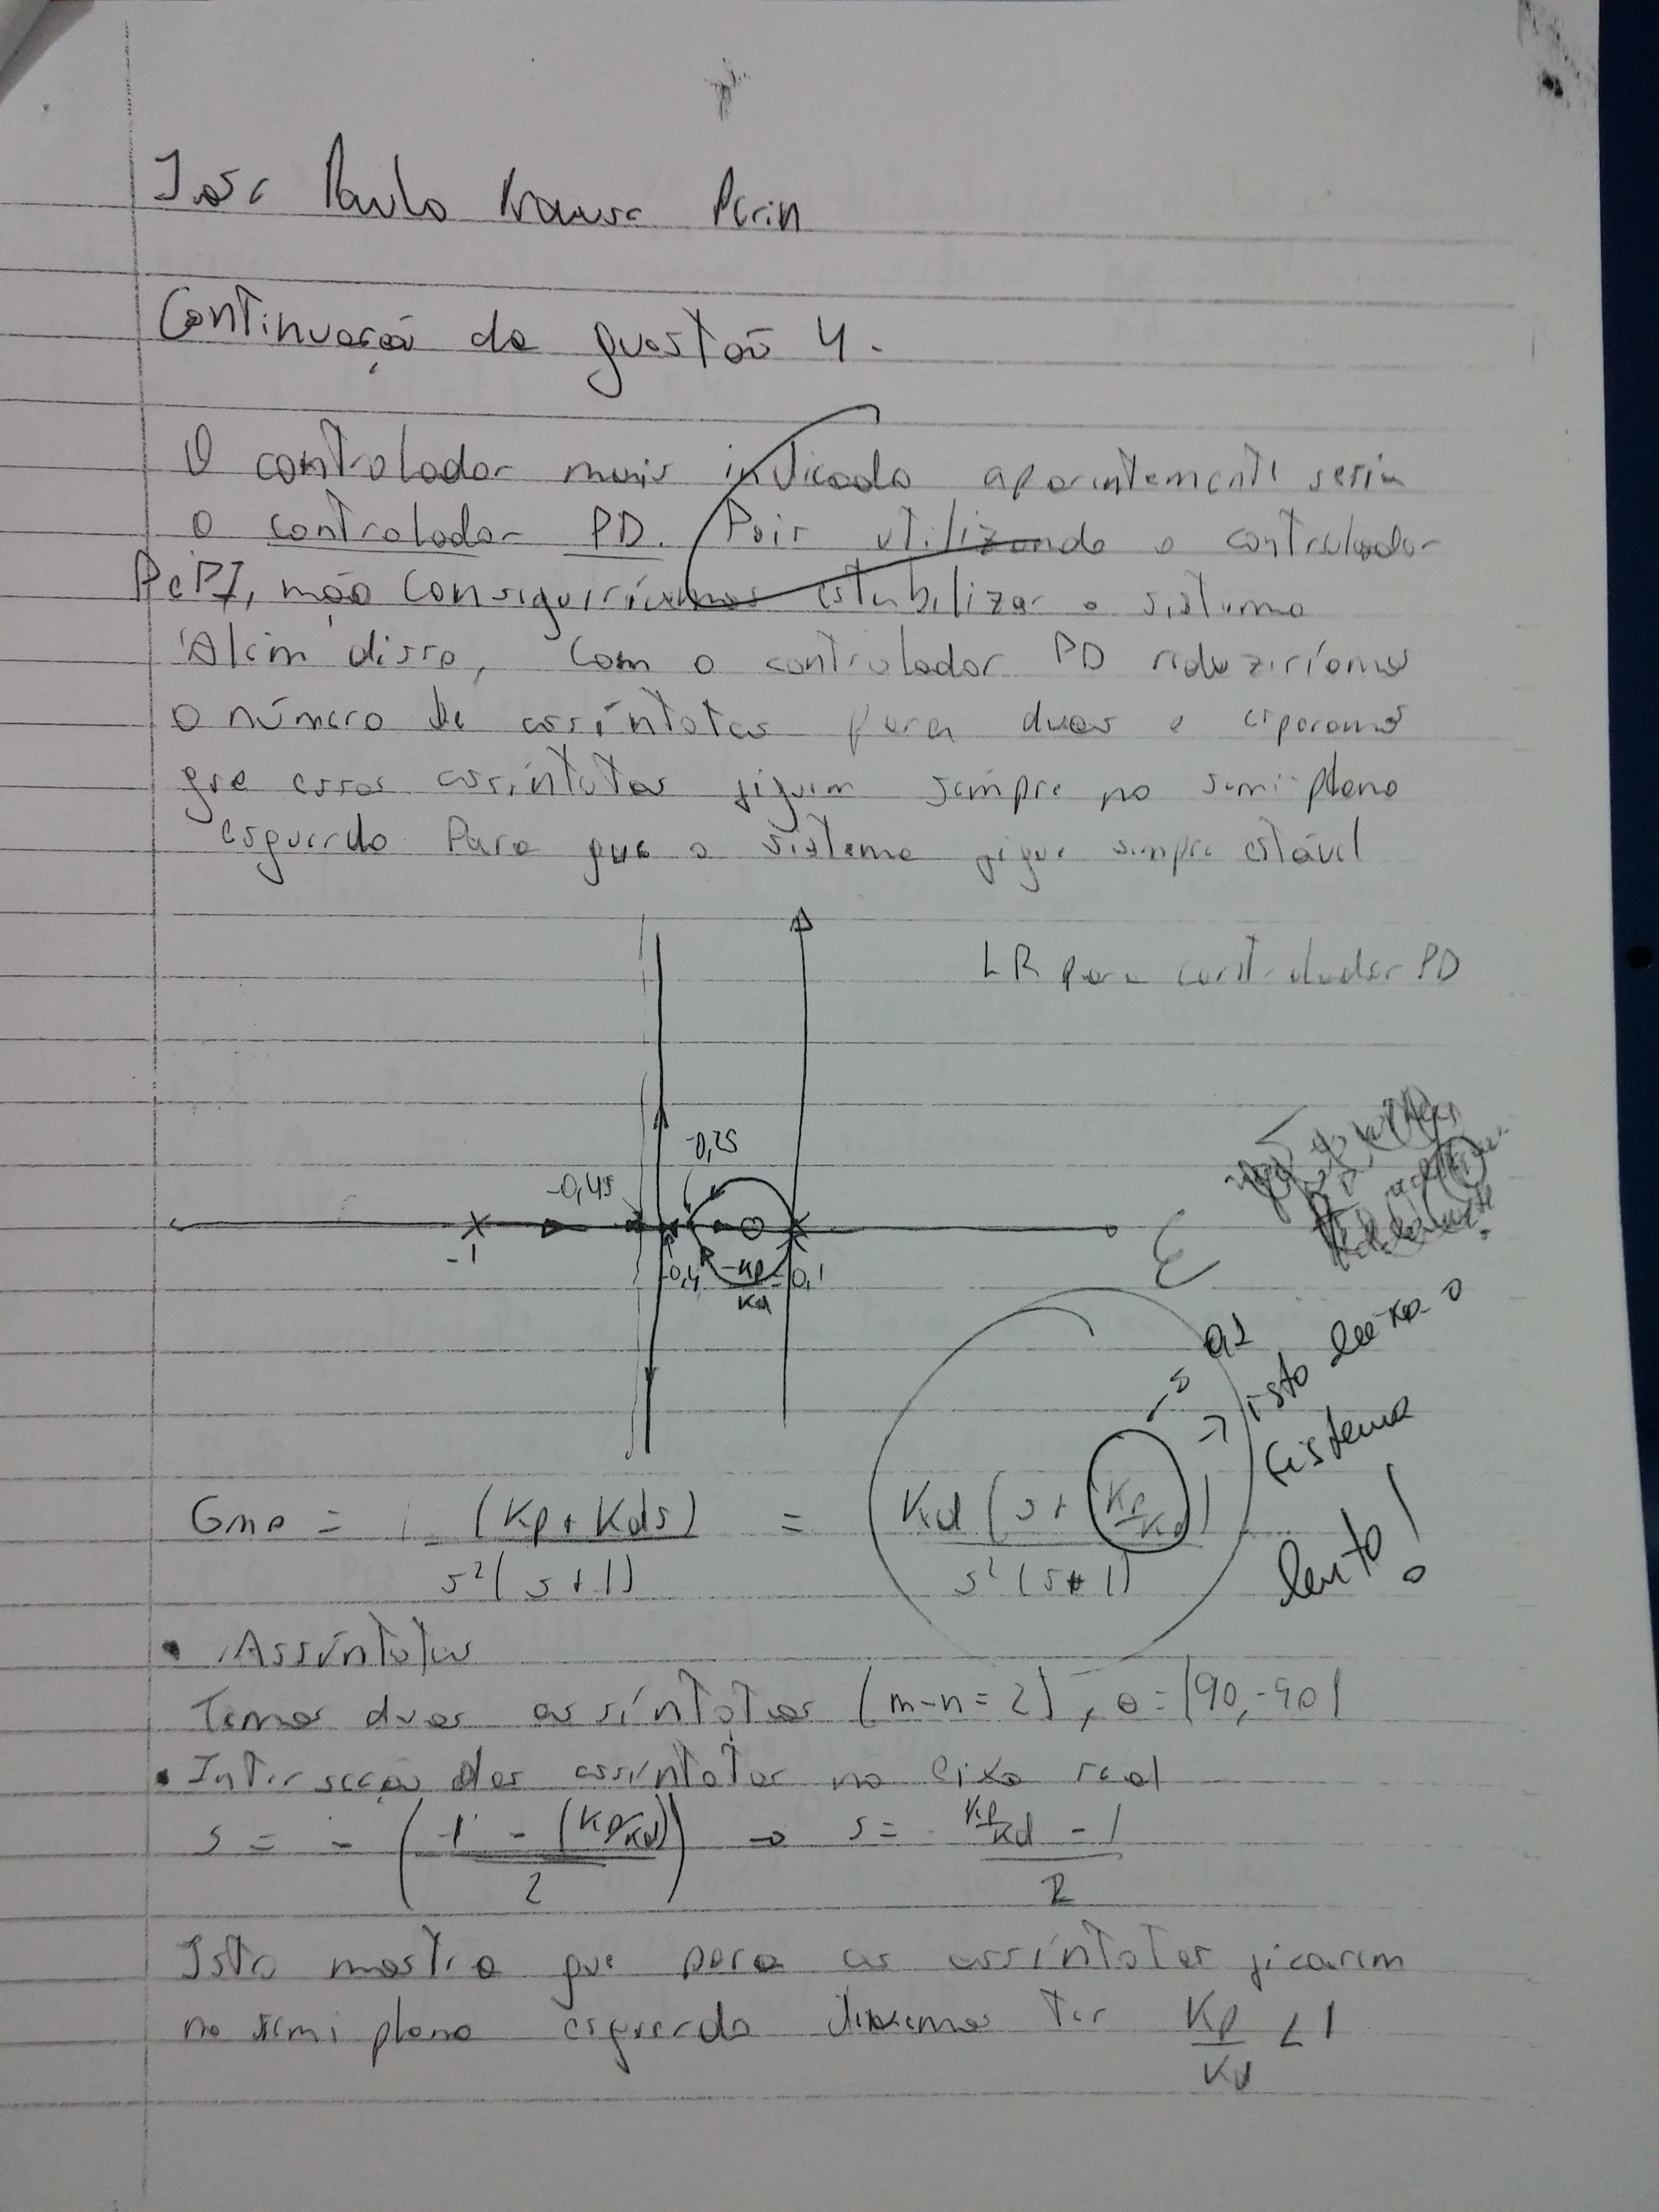 José Paulo Krause Perin
Continuação da questão 4.
O controlador mais indicado aparentemente seria
o controlador PD. Pois utilizando o controlador
P e PI, não conseguiríamos estabilizar o sistema
Além disso, com o controlador PD reduziríamos
o número de assíntotas para duas e esperamos
que essas assíntotas fiquem sempre no semi-plano
esquerdo Para que o sistema fique sempre estável
LR para controlador PD
-0,25
-0,45
-1
-0,4
-Kp/Kd = -0,1
0,1
isto deixa o
sistema
lento!
Gma = (Kp + Kds) / s²(s+1) = Kd (s + Kp/Kd) / s²(s+1)
• Assíntotas
Temos duas assíntotas (m-n=2), θ=|90,-90|
• Intersecção das assíntotas no eixo real
s = - (-1 - (Kp/Kd) / 2) → s = Kp/Kd - 1 / 2
Isto mostra que para as assíntotas ficarem
no semi plano esquerdo devemos ter Kp/Kd < 1